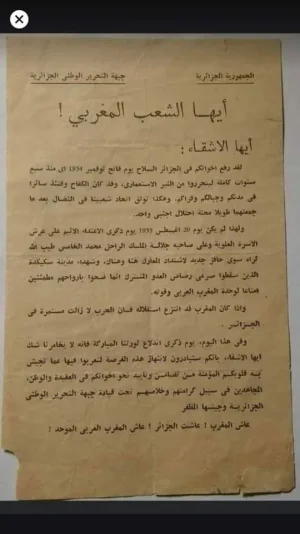 الجمهورية الجزائرية
جبهة التحرير الوطني الجزائرية
أيها الشعب المغربي !
أيها الاشقاء :
لقد رفع اخوانكم في الجزائر السلاح يوم فاتح نوفمبر 1954 اي منذ سبع
سنوات كاملة ليتحرروا من النير الاستعماري، وقد كان الكفاح وقتئذ سائرا
في مدنكم وجبالكم وقراكم. وهكذا توثق اتحاد شعبينا في النضال بعد ما
جمعتهما طويلا محنة احتلال اجنبي واحد.
ولهذا لم يكن يوم 20 اغسطس 1955 يوم ذكرى الاعتداء الاثيم على عرش
الاسرة العلوية وعلى صاحبه جلالة الملك الراحل محمد الخامس طيب الله
ثراه سوى حافز جديد لاشتداد المعارك هنا وهناك، وشهداء مدينة سكيكدة
الذين سقطوا صرعى رصاص العدو المشترك انما ضحوا بارواحهم مطمئنين
فداء لوحدة المغرب العربي وقوته.
واذا كان المغرب قد انتزع استقلاله فان الحرب لا زالت مستمرة في
الجزائر.
وفي هذا اليوم، يوم ذكرى اندلاع ثورتنا المباركة فانه لا يخامرنا شك
ايها الاشقاء، بانكم ستبادرون لانتهاز هذه الفرصة لتعربوا فيها عما تجيش
به قلوبكم المؤمنة من تضامن وتاييد نحو اخوانكم في العقيدة والوطن،
المجاهدين في سبيل كرامتهم وخلاصهم تحت قيادة جبهة التحرير الوطني
الجزائرية وجيشها المظفر
عاش المغرب ! عاشت الجزائر ! عاش المغرب العربي الموحد !